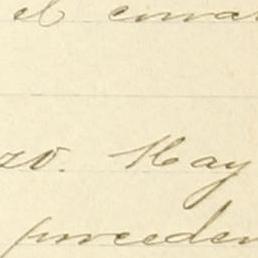 el
zo. Hay
preceden